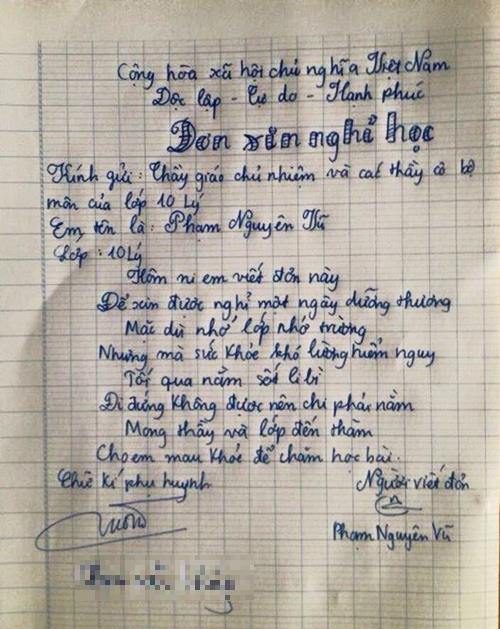 Cộng hòa xã hội chủ nghĩa Việt Nam
Độc lập - Tự do - Hạnh phúc
Đơn xin nghỉ học
Kính gửi: Thầy giáo chủ nhiệm và các thầy cô bộ
môn của lớp 10 Lý
Em tên là: Phạm Nguyên Vũ
Lớp: 10 Lý
Hôm ni em viết đơn này
Để xin được nghỉ một ngày dưỡng thương
Mặc dù nhớ lớp nhớ trường
Nhưng mà sức khỏe khó lường hiểm nguy
Tối qua nằm sốt li bì
Đi đứng không được nên chi phải nằm
Mong thầy và lớp đến thăm
Cho em mau khỏe để chăm học bài.
Chữ kí phụ huynh
Người viết đơn
Phạm Nguyên Vũ